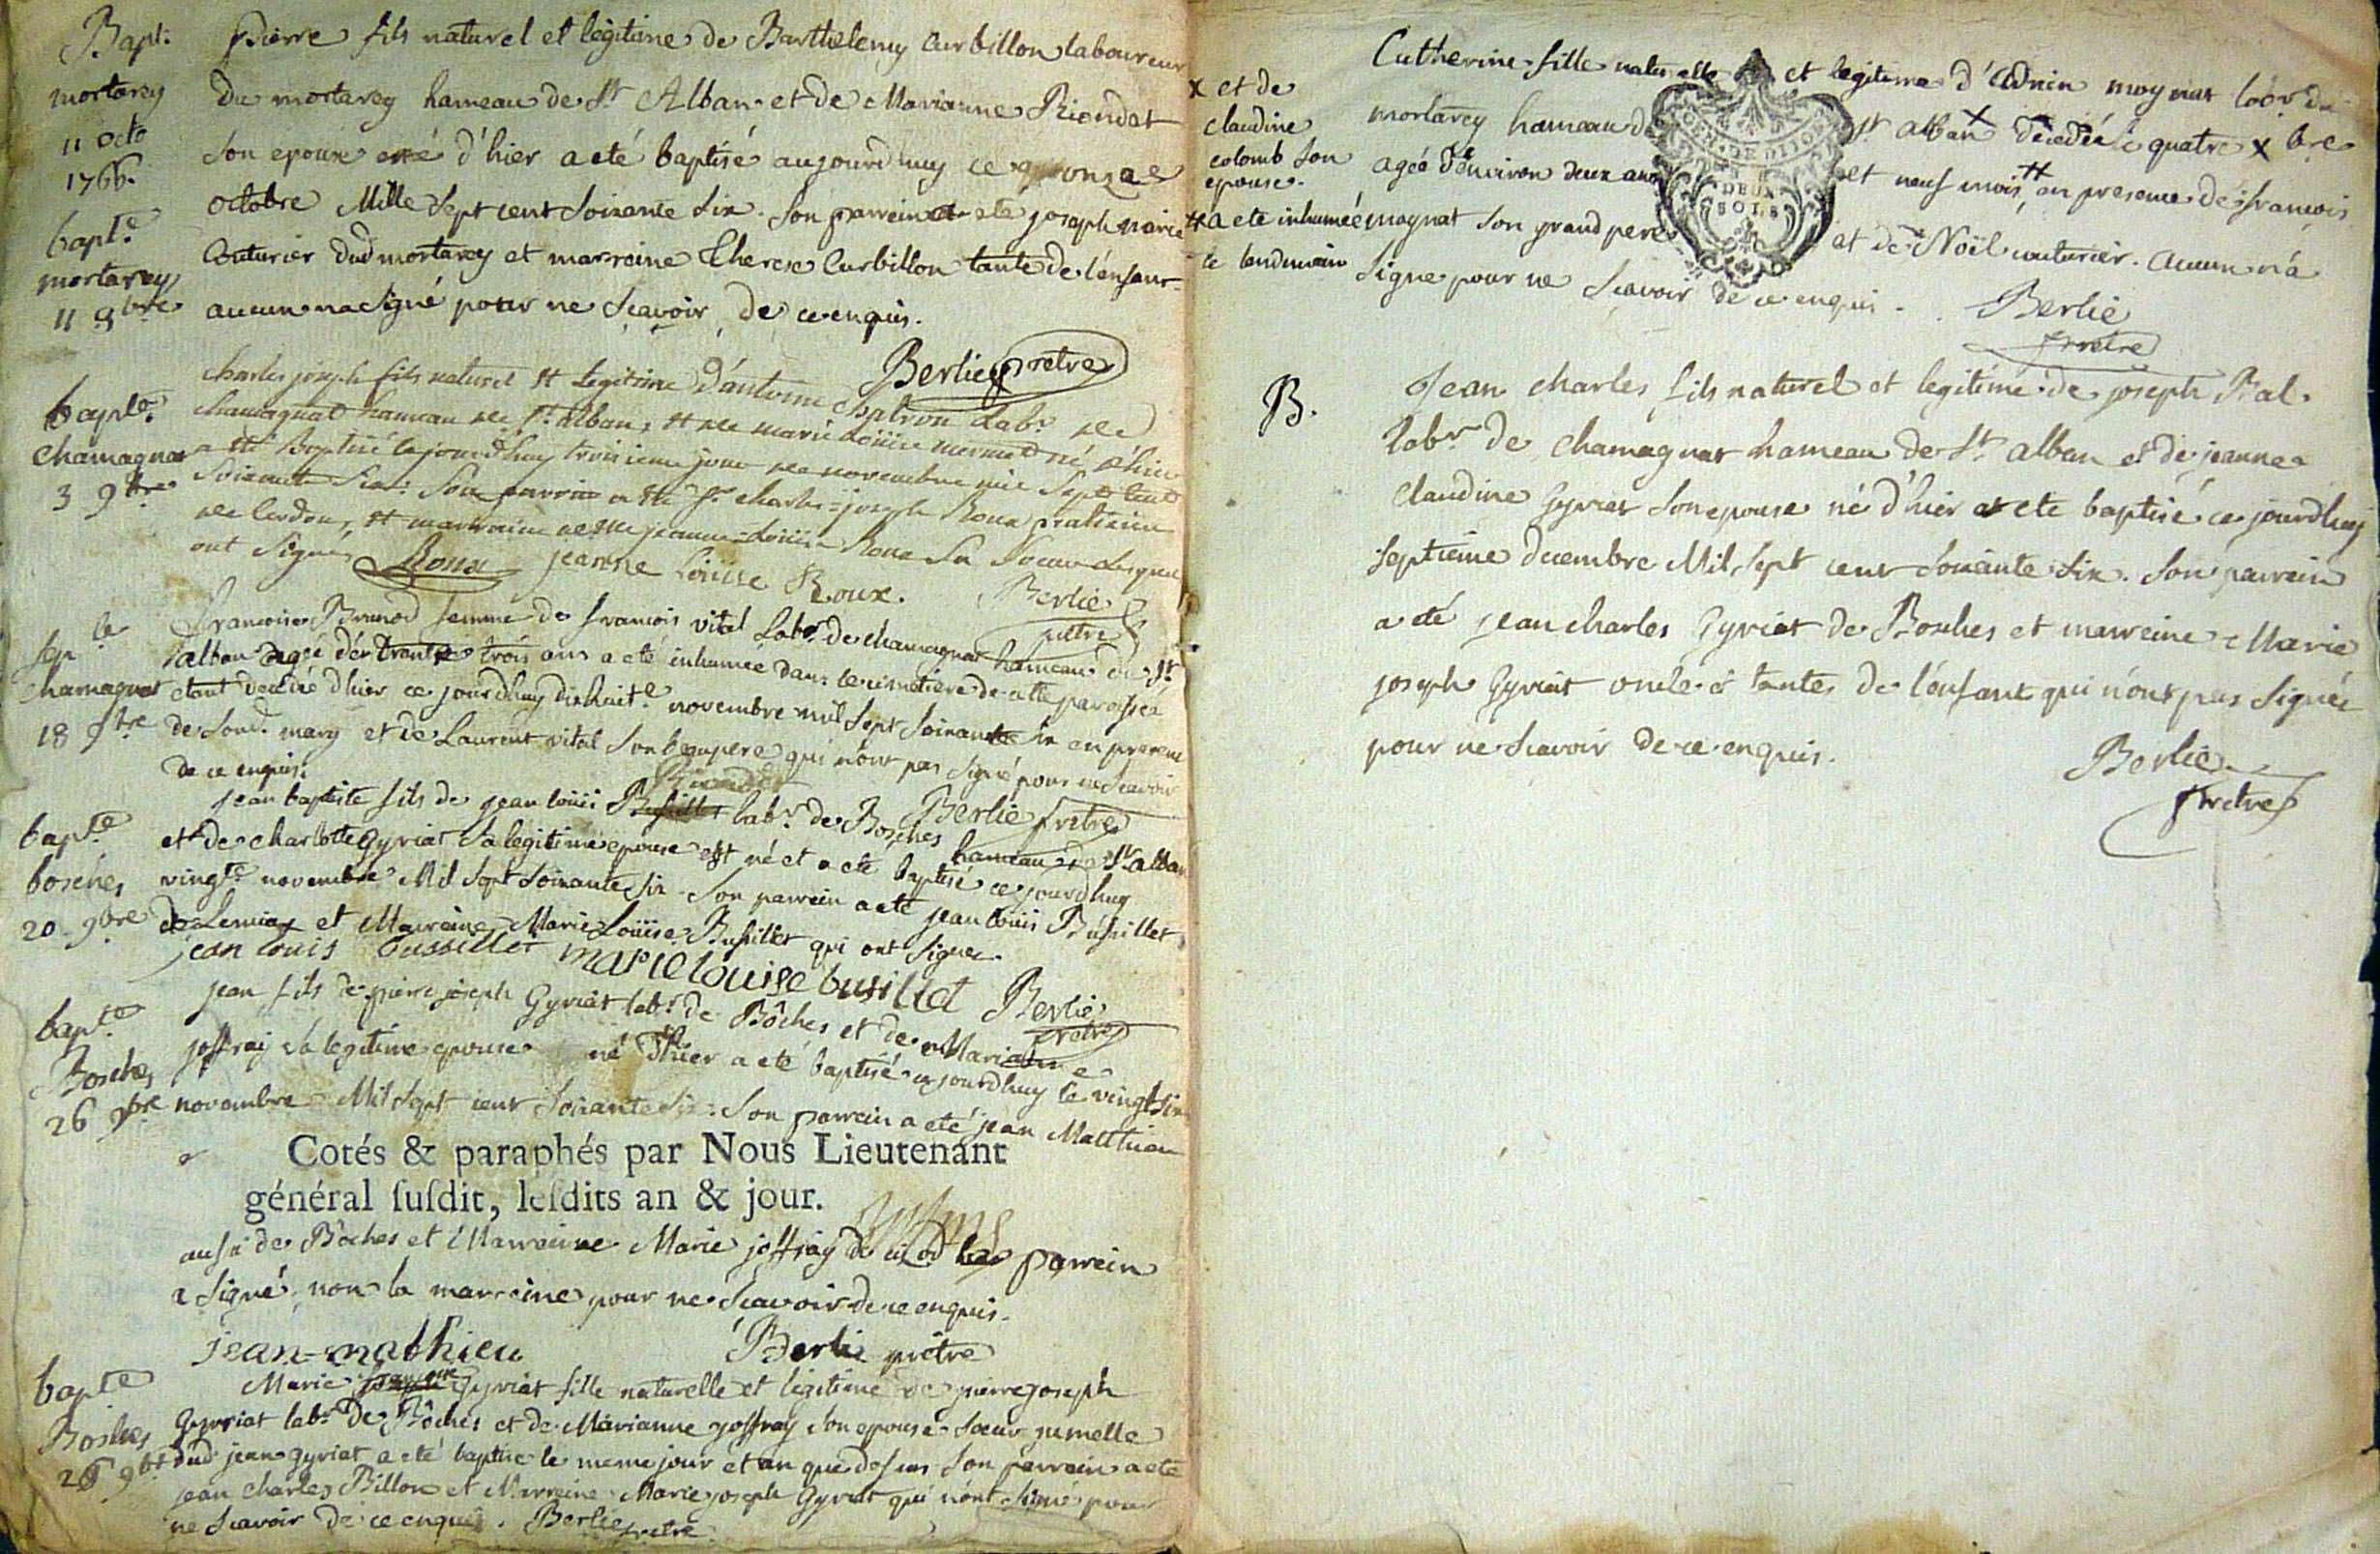 Bapt.
mortarey
11 octo
1766.
pierre fils naturel et légitime de Barthelemy Curbillon laboureur
du mortarey hameau de St Alban et de Marianne Riondat
son epouse né d'hier a eté baptisé aujourdhuy ce onze
octobre Mille sept cent soixante six. son parrein a ete joseph marie
Couturier dud mortarey et marreine Therese Curbillon tante de l'enfant
aucun na signé pour ne sçavoir de ce enquis.
Berlie pretre
bapt.e
mortarey
11 8bre
bapte.
chamagnat
3 9bre
charles joseph fils naturel et legitime d'antoine chatron Labr de
chamagnat hameau de St. alban, et de marie Loüise mermet né d'hier
a été Baptisé cejourdhuy troisieme jour de novembre mil sept cent
soixante six. son parrin a été Sr. charles=joseph Roux praticien
de Cerdon, et marraine delle jeanne=Loüise Roux sa soeur lesquels
ont signés Roux jeanne Loüise Roux. Berlie
pretre
sep.le
chamagnat
18 9bre
francoise Brunod femme de francois vital Labr. de chamagnat hameau de St
alban agée de trente trois ans a eté inhumée dans le cimetiere de cette paroisse
etant decedée d'hier ce jourdhuy dixhuit.e novembre mil sept soixante six en presence
de sond. mary et de Laurent vital son beaupere qui n'ont pas signé pour ne scavoir
de ce enquis.
Berlie pretre
bapt.e
bosches
20 9bre
Riondet
jean baptiste fils de jean loüis Busillet labr. de Bosches hameau de St alban
et de charlotte Gyriat sa legitime epouse est né et a eté baptisé ce jourdhuy
vingt.e novembre Mil sept soixante six. son parrein a eté jean loüis Busillet
de Lemiay et Marreine Marie Loüise Busillet qui ont signer.
jean louis bussillet marie louise busillet Berlie
pretre
bapt.e
Bosches
26 9bre
jean fils de pierre joseph Gyriat labr. de Bôches et de Marianne
joffray sa legitime epouse né d'hier a eté baptisé cejourdhuy le vingtsix
novembre Mil sept cent soixante six. son parrein a eté jean Matthieu
Cotés & paraphés par Nous Lieutenant
général susdit, lesdits an & jour.
aussi de Bôches et Marreine Marie joffray de le parrein
a signé non la marreine pour ne scavoir de ce enquis.
jean-mathieu Berlie prêtre
bapt.e
Bosches
26 9bre
Marie Gyriat fille naturelle et legitime de pierre joseph
Gyriat labr. de Bôches et de Marianne joffray son epouse soeur jumelle
dud jean gyriat a eté baptisé le meme jour et an que dessus son parrein a eté
jean charles Billon et Marreine Marie joseph Gyriat qui n'ont signé pour
ne scavoir de ce enquis. Berlie pretre
Catherine fille naturelle et legitime d'Adnin moynat labr du
mortarey hameau de St alban x decedée le quatre xbre
agée d'environ deux ans et neuf mois, # en presence de francois
moynat son grand pere et de Noël couturier. aucun n'a
signe pour ne scavoir de ce enquis.
Berlie
pretre
x et de
claudine
colomb son
epouse.
# a ete inhumée
le lendemain
GEN. DE DIJON
DEUX
SOLS
B.
Jean charles fils naturel et legitime de joseph Bal.
labr de chamagnat hameau de St alban et de jeanne
claudine Gyriat son epouse né d'hier a ete baptisé ce jourdhuy
septieme decembre Mil sept cent soixante six. son parrein
a eté jean charles Gyriat de Bosches et marreine Marie
joseph Gyriat oncle & tante de l'enfant qui n'ont pas signés
pour ne scavoir de ce enquis.
Berlie
pretre